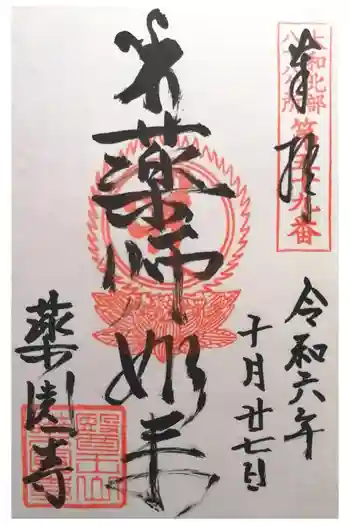 奉拝
大和北部
八十八ヶ所
第五十九番
令和六年
十月廿七日
薬師如来
薬園寺